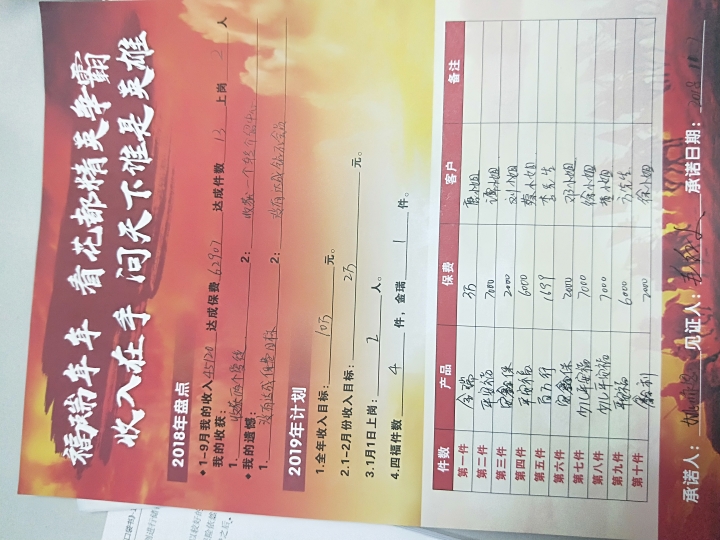 福瑞年年 看花都精英争霸
收入在手 问天下谁是英雄
2018年盘点
◆1-9月我的收入45120 达成保费62907 达成件数13 上岗2人
我的收获:
1. 2:收获一个
◆我的遗憾:
1. 没有达成 2: 没有达成钻石会员
2019年计划
1.全年收入目标: 10万 元。
2.1-2月份收入目标: 2万 元。
3.1月1日上岗: 2 人。
4.四福件数 4 件,金瑞 1 件。
件数 产品 保费 客户 备注
第一件 金瑞 3万 小姐
第二件 平安福 7000 谭小姐
第三件 安鑫保 2000 刘小姐
第四件 平安福 6000 蔡小姐
第五件 百万行 1699 李先生
第六件 安鑫保 2000 邓小姐
第七件 少儿平安福 7000 徐小姐
第八件 少儿平安福 7000 黄小姐
第九件 平安福 6000 方先生
第十件 鑫利 2000 徐小姐
承诺人: 见证人: 承诺日期: 2018.